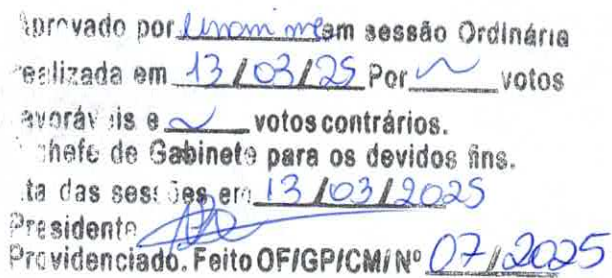 Aprovado por Unanime em sessão Ordinária
realizada em 13/03/25 Por ~ votos
favoráveis e ~ votos contrários.
chefe de Gabinete para os devidos fins.
ta das sessões em 13/03/2025
Presidente
Providenciado. Feito OF/GP/CMI Nº 07/2025